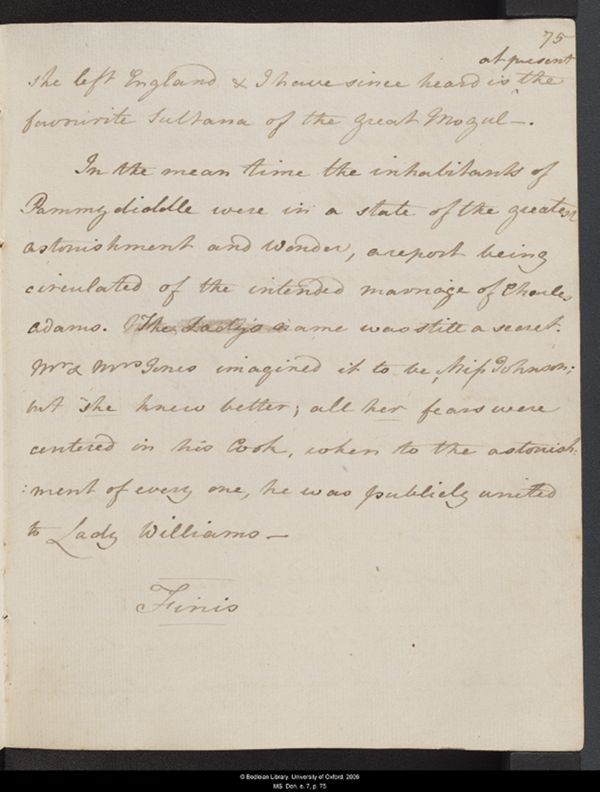 75
at present
she left England & I have since heard is ^ the
favourite Sultana of the great Mogul —.
In the mean time the inhabitants of
Pammydiddle were in a state of the greatest
astonishment and Wonder, a report being
circulated of the intended marriage of Charles
Adams. The Lady's name was still a secret.
Mr & Mrs Jones imagined it to be, Miss Johnson;
but she knew better; all her fears were
centered in his Cook, when to the astonish:
:ment of every one, he was publicly united
to Lady Williams —
Finis
© Bodleian Library, University of Oxford, 2006
MS. Don. e. 7, p. 75